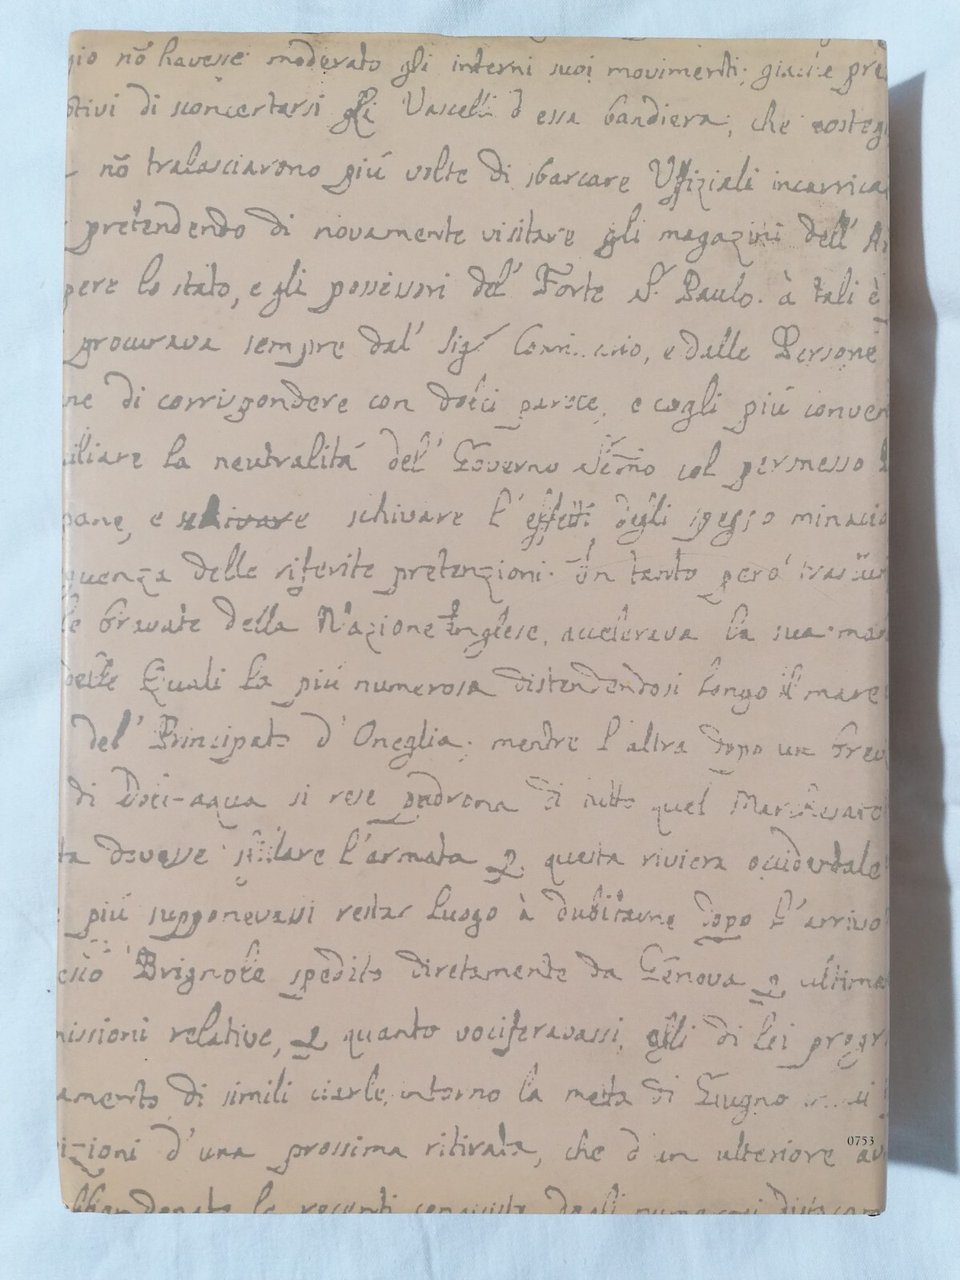 nõ havesse moderato gli interni suoi movimenti; pre
di sconcertarsi gli Vascelli d essa bandiera, che
nõ tralasciarono piú volte di sbarcare Uffiziali incarrica
pretendendo di novamente visitare gli magazini dell' A
pere lo stato, e gli possessori del' Forte S. Paulo. à tali è
procurava sempre dal' Sig.r e dalle Persone
ne di corrispondere con dolci e cogli piú conven
iliare la neutralitá del' Governo col permesso
pane, e schivare schivare l' effetti degli minacia
quenza delle riferite pretenzioni. Un tanto peró
le bravate della Nazione Inglese, accelerava la sua mar
delle Quali la piú numerosa distendendosi longo il mare
del' Principato d' Oneglia; mentre l'altra dopo un brev
di Dolci-aqua si rese padrona di tutto quel Marchesato
ta dovesse sfilare l'armata questa riviera occidentale
piú supponevassi restar luogo à dubitarne dopo l'arrivo
Brignole spedito diretamente da Génova ultima
missioni relative, quanto vociferavassi, gli di lei progr
amento di simili ciarle, intorno la metà di Giugno
izioni d'una prossima ritirata, che d un ulteriore av
0753
abbandonato le recenti conquiste degli numerosi